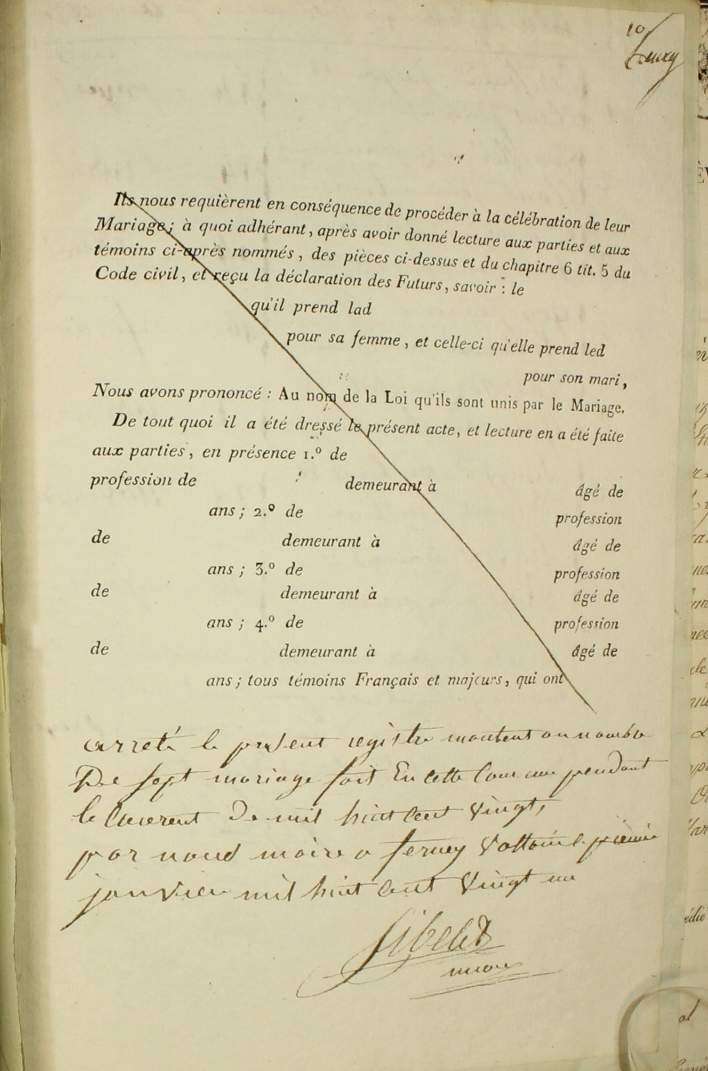 10
Ils nous requièrent en conséquence de procéder à la célébration de leur
Mariage; à quoi adhérant, après avoir donné lecture aux parties et aux
témoins ci-après nommés, des pièces ci-dessus et du chapitre 6 tit. 5 du
Code civil, et reçu la déclaration des Futurs, savoir : le
qu'il prend lad
pour sa femme, et celle-ci qu'elle prend led
pour son mari,
Nous avons prononcé : Au nom de la Loi qu'ils sont unis par le Mariage.
De tout quoi il a été dressé le présent acte, et lecture en a été faite
aux parties, en présence 1.º de
profession de demeurant à âgé de
ans; 2.º de profession
de demeurant à âgé de
ans; 3.º de profession
de demeurant à âgé de
ans; 4.º de profession
de demeurant à âgé de
ans; tous témoins Français et majeurs, qui ont
arreté le present registre montent au nombre
De sept mariage fait En cette Commune pendant
le Courent De mil huit Cent vingt,
par noud maire a ferney Voltaire le premie
janvier mil huit Cent Vingt un
maire